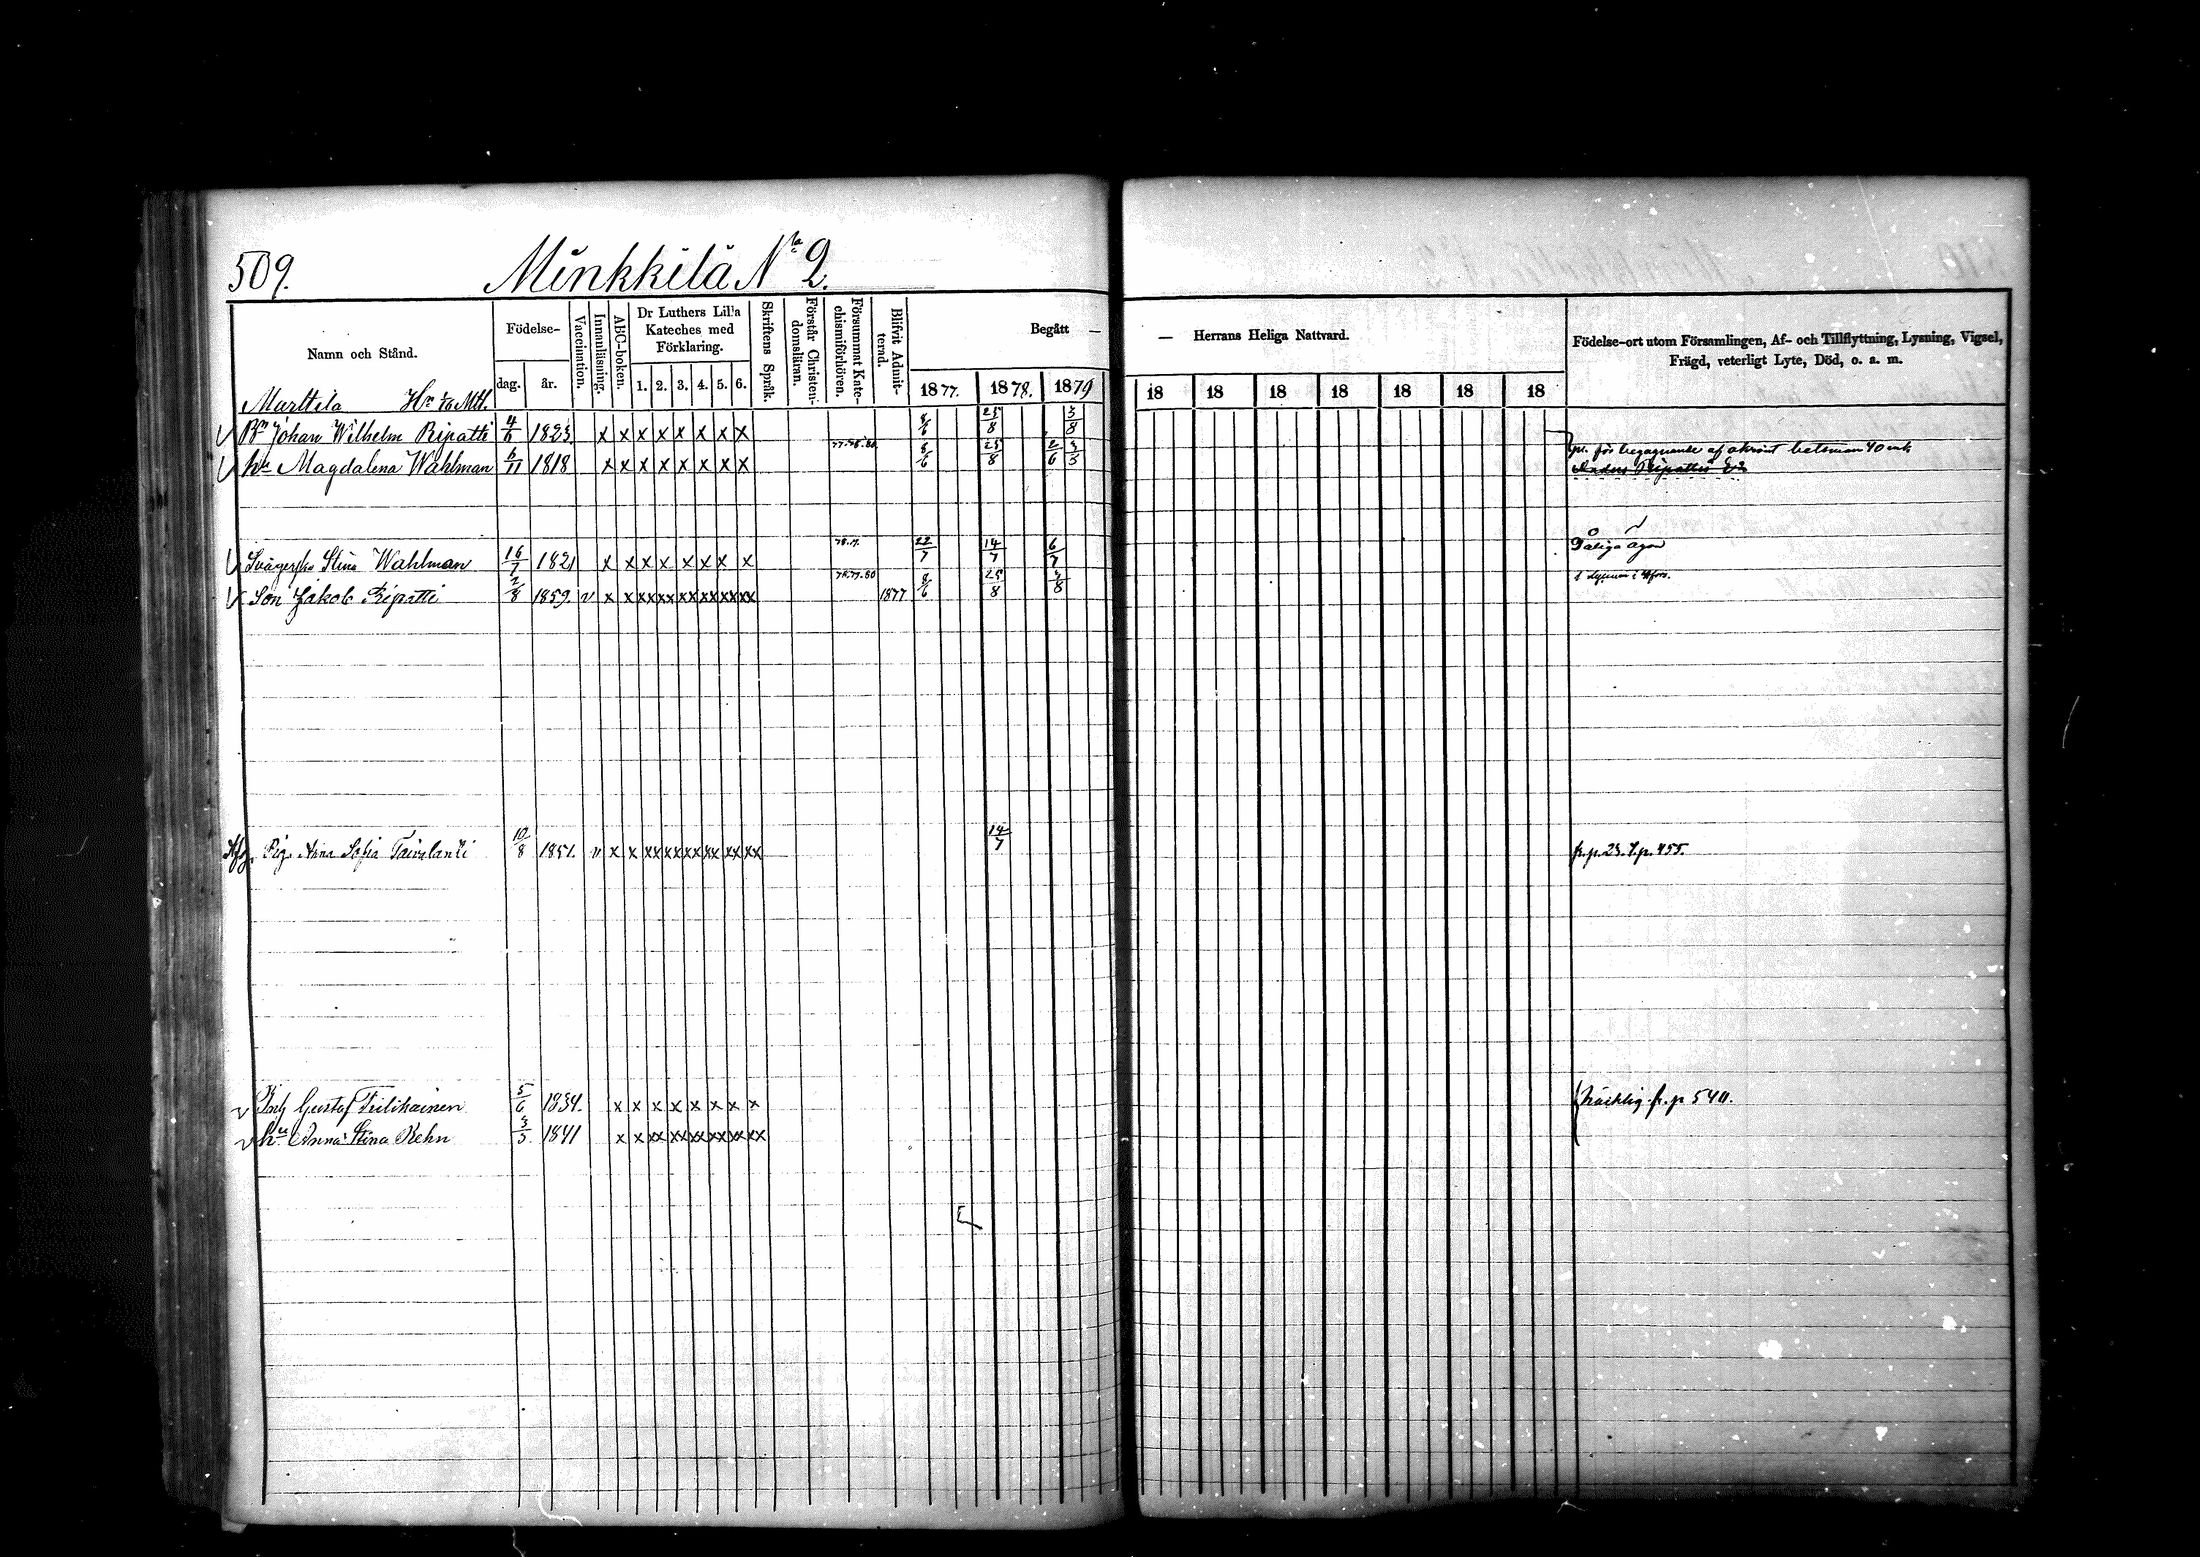 509. Minkkilä No 2.
Namn och Stånd.
Födelse-
dag. år.
Vaccination.
Innanläsning.
ABC-boken.
Dr Luthers Lilla Kateches med Förklaring.
1. 2. 3. 4. 5. 6.
Skriftens Språk.
Förstår Christendomsläran.
Försummat Katechismiförhören.
Blifvit Admitterad.
Begått —
— Herrans Heliga Nattvard.
1877. 1878. 1879 18 18 18 18 18 18 18
Födelse-ort utom Församlingen, Af- och Tillflyttning, Lysning, Vigsel,
Frägd, veterligt Lyte, Död, o. a. m.
Marttila Mtl.
Johan Wilhelm Ripatti 4/6 1823. x x x x x x x x 8/6 25/8 3/8
hu Magdalena Wahlman 6/11 1818 x x x x x x x x 77.78.80 8/6 25/8 2/6 3/3 för begagnande af okrönt betsman 40 mk
Stina Wahlman 16/7 1821 x x x x x x x x 22/7 14/7 6/7 Dåliga ögon
Son Jakob Ripatti 2/8 1859. v x x xx xx xx xx xx xx 1877 8/6 25/8 3/8
Pig. Anna Sofia 10/8 1851. v x x xx xx xx xx xx xx 14/7 fr. p. 23. T. p. 455.
Inh Gustaf 5/6 1834. x x x x x x x x fr. p 540.
hu Anna Stina Rehn 3/3 1841 x x xx xx xx xx xx xx